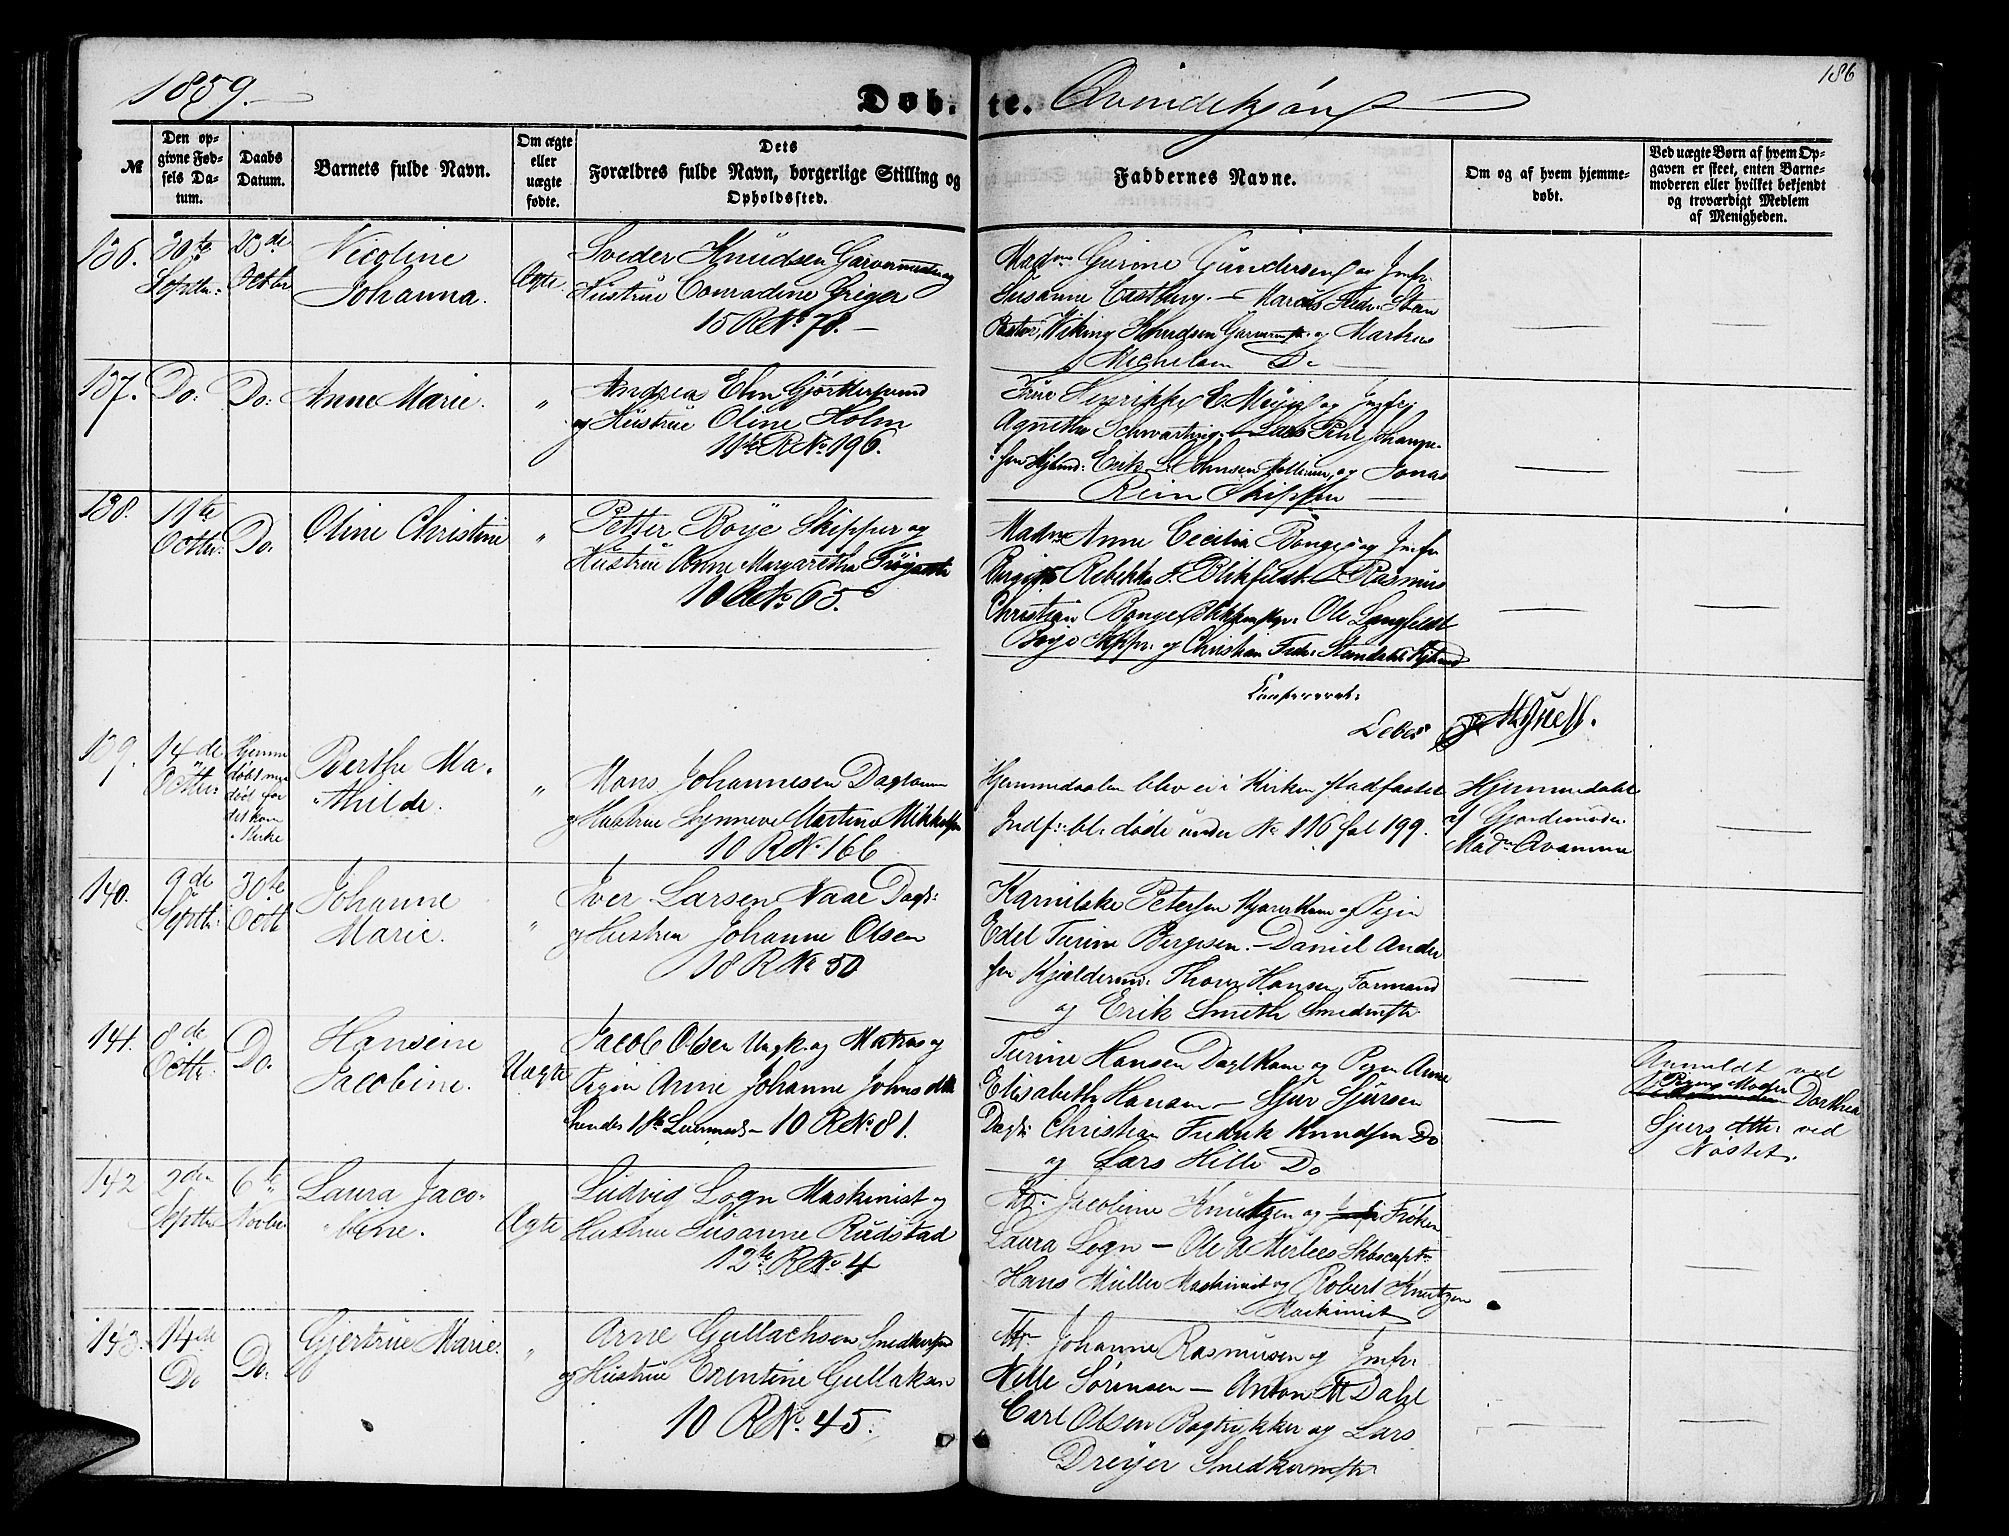 1859.
Døb-te. Qvindekjøn
186
№
Den op-
givne Fød-
sels Da-
tum.
Daabs
Datum.
Barnets fulde Navn.
Om ægte
eller
uægte
fødte.
Dets
Forældres fulde Navn, borgerlige Stilling og
Opholdssted.
Faddernes Navne.
Om og af hvem hjemme-
døbt.
Ved uægte Børn af hvem Op-
gaven er skeet, enten Barne-
moderen eller hvilket bekjendt
og troværdigt Medlem
af Menigheden.
136.
30te
Septbr:
23de
Octbr
Nicoline
Johanna.
Ægte
Sveder Knudsen Garvermester og
Hustrue Conradine Griger
15 R No 78. —
Madme Gurine Gundersen og Jmfr
Susanne Castberg. — Marcus Fedr: Stan
Wiking Knudsen Garvermstr: og Markus
Michelsen Do
137.
Do:
Do:
Anne Marie.
"
Andreas Elm Gjørtlersvend
og Hustrue Oline Holm
11te R No 196.
Frue Henrikke E. Meyer og Jmfr
Agnethe Schwartzing. — Lars Pehl Johannes-
sen Erik L. Johnsen og Jonas
Rein Skipper —
138.
11te
Octbr:
Do.
Oline Christine
"
Petter Boye Skipper og
Hustrue Anne Margarethe
10 R No 65.
Madme Anne Cecilia Bonge og Jmfr
Rebekka F. Blikfeldt — Rasmus
Christian Bonge Ole Langfeldt
Boye Skippr: og Christian Fredr:
Confereret:
139.
14de
Octbr:
Hjemme
døbt men
død før
det kom
i Kirke
Berthe Ma-
"thilde.
"
Mons Johannesen Daglønner
og Hustrue Synneve Martine Mikkelsen
10 R No 166
Hjemmedaaben blev ei i Kirken stadfæstet
Indf: bl: døde under No 116 fol 199.
Hjemmedøbt
af Gjordemoder
Madm Qvamme
140.
9de
Septbr:
30te
Octb
Johanne
Marie.
"
Iver Larsen Naae Dagl:
og Hustrue Johanne Olsen
18 R No 50
Karnilske Petersen Kjørerkone og Pigen
Edel Turine Bergesen. — Daniel Ander
sen Thore Hansen, Formand
og Erik Smith Smedmstr
141.
8de
Octbr.
Do.
Hansine
Jacobine.
Uægte
Jacob Olsen Ungk. og Matros og
Pigen Anne Johanne Johns dtr
hendes 1ste Leiermaal — 10 R No 81.
Turine Hansen Dagl Kone og Pigen Anne
Elisabeth Hansen — Sjur Sjursen
Dagl: Christian Fredrik Knudsen Do
og Lars Hille Do
Anmeldt ved
Pigens Moder
Dorthea
Sjurs dttr ved
Nøstet.
142
2den
Septbr
6te
Novbr
Laura Jaco-
"bine.
Ægte
Ludvig Logn Maskinist og
Hustrue Susanne Rudstad
12te R No 4
Mme Jacobine Knutzen og Frøken
Laura Logn — Ole A Merlees Skbscaptn
Hans Müller Maskinist og Robert Knutzen
Maskinist
143.
14de
Do
Do.
Gjertrue Marie.
"
Arne Gullachsen Snedkersvend
og Hustrue Erentine Gullaksen
10 R No. 45.
Mme Johanne Rasmussen og Jmfr:
Nelle Sørensen — Anton M Dahl
Carl Olsen Bogtrykker og Lars
Dreyer Snedkermstr